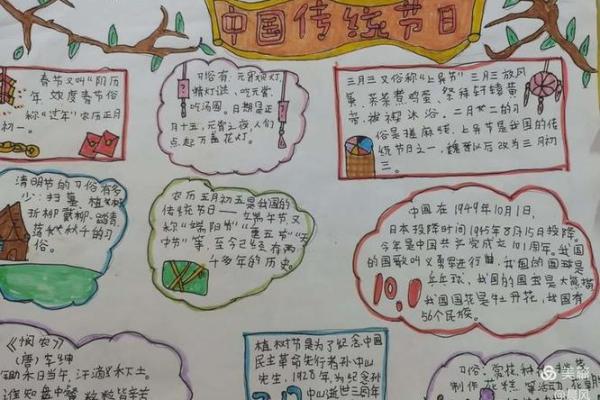 中国传统节日
春节又叫“阴历
年 欢度春节俗
称“过年”农历正月
初一。
习俗有：元宵观灯，
猜灯谜、吃元宵、
吃汤圆。日期是正
月十五，元宵之夜，人们
点起万盏花灯。
三月三又俗称“上巳节”三月三放风
筝、荠菜煮鸡蛋、祭拜轩辕黄
帝、祓禊沐浴。二月廿二的习
俗是搓麻线，上巳节是我国的传
统节日之一，魏晋以后改为三月初
三。
清明节的习俗有多
少：扫墓、植树
折柳戴柳、踏青、
荡秋秋千的习
俗。
农历五月初五是我国的
传统节日——端午节又
称“端阳节”“重五节”“天
中节”等，至今已经有两
千多年的历史。
中国 在 1949年10月1日，
日本投降时间1945年8月15日投降。
今年是中国共产党成立101周年。我国
的国歌叫义勇军进行曲，我国的国球是
乒乓球，我国的国宝是大熊猫
我国国花是牡丹花，我国有
56个民族。
10.1
《悯农》
(唐) 李绅
锄禾日当午，汗滴禾下土。
谁知盘中餐 粒粒皆辛苦
植树节是为了纪念中国
民主革命先行者孙中山
先生，1928年，为纪念孙
中山逝世三周年
习俗：赏花、
制作花糕
美篇